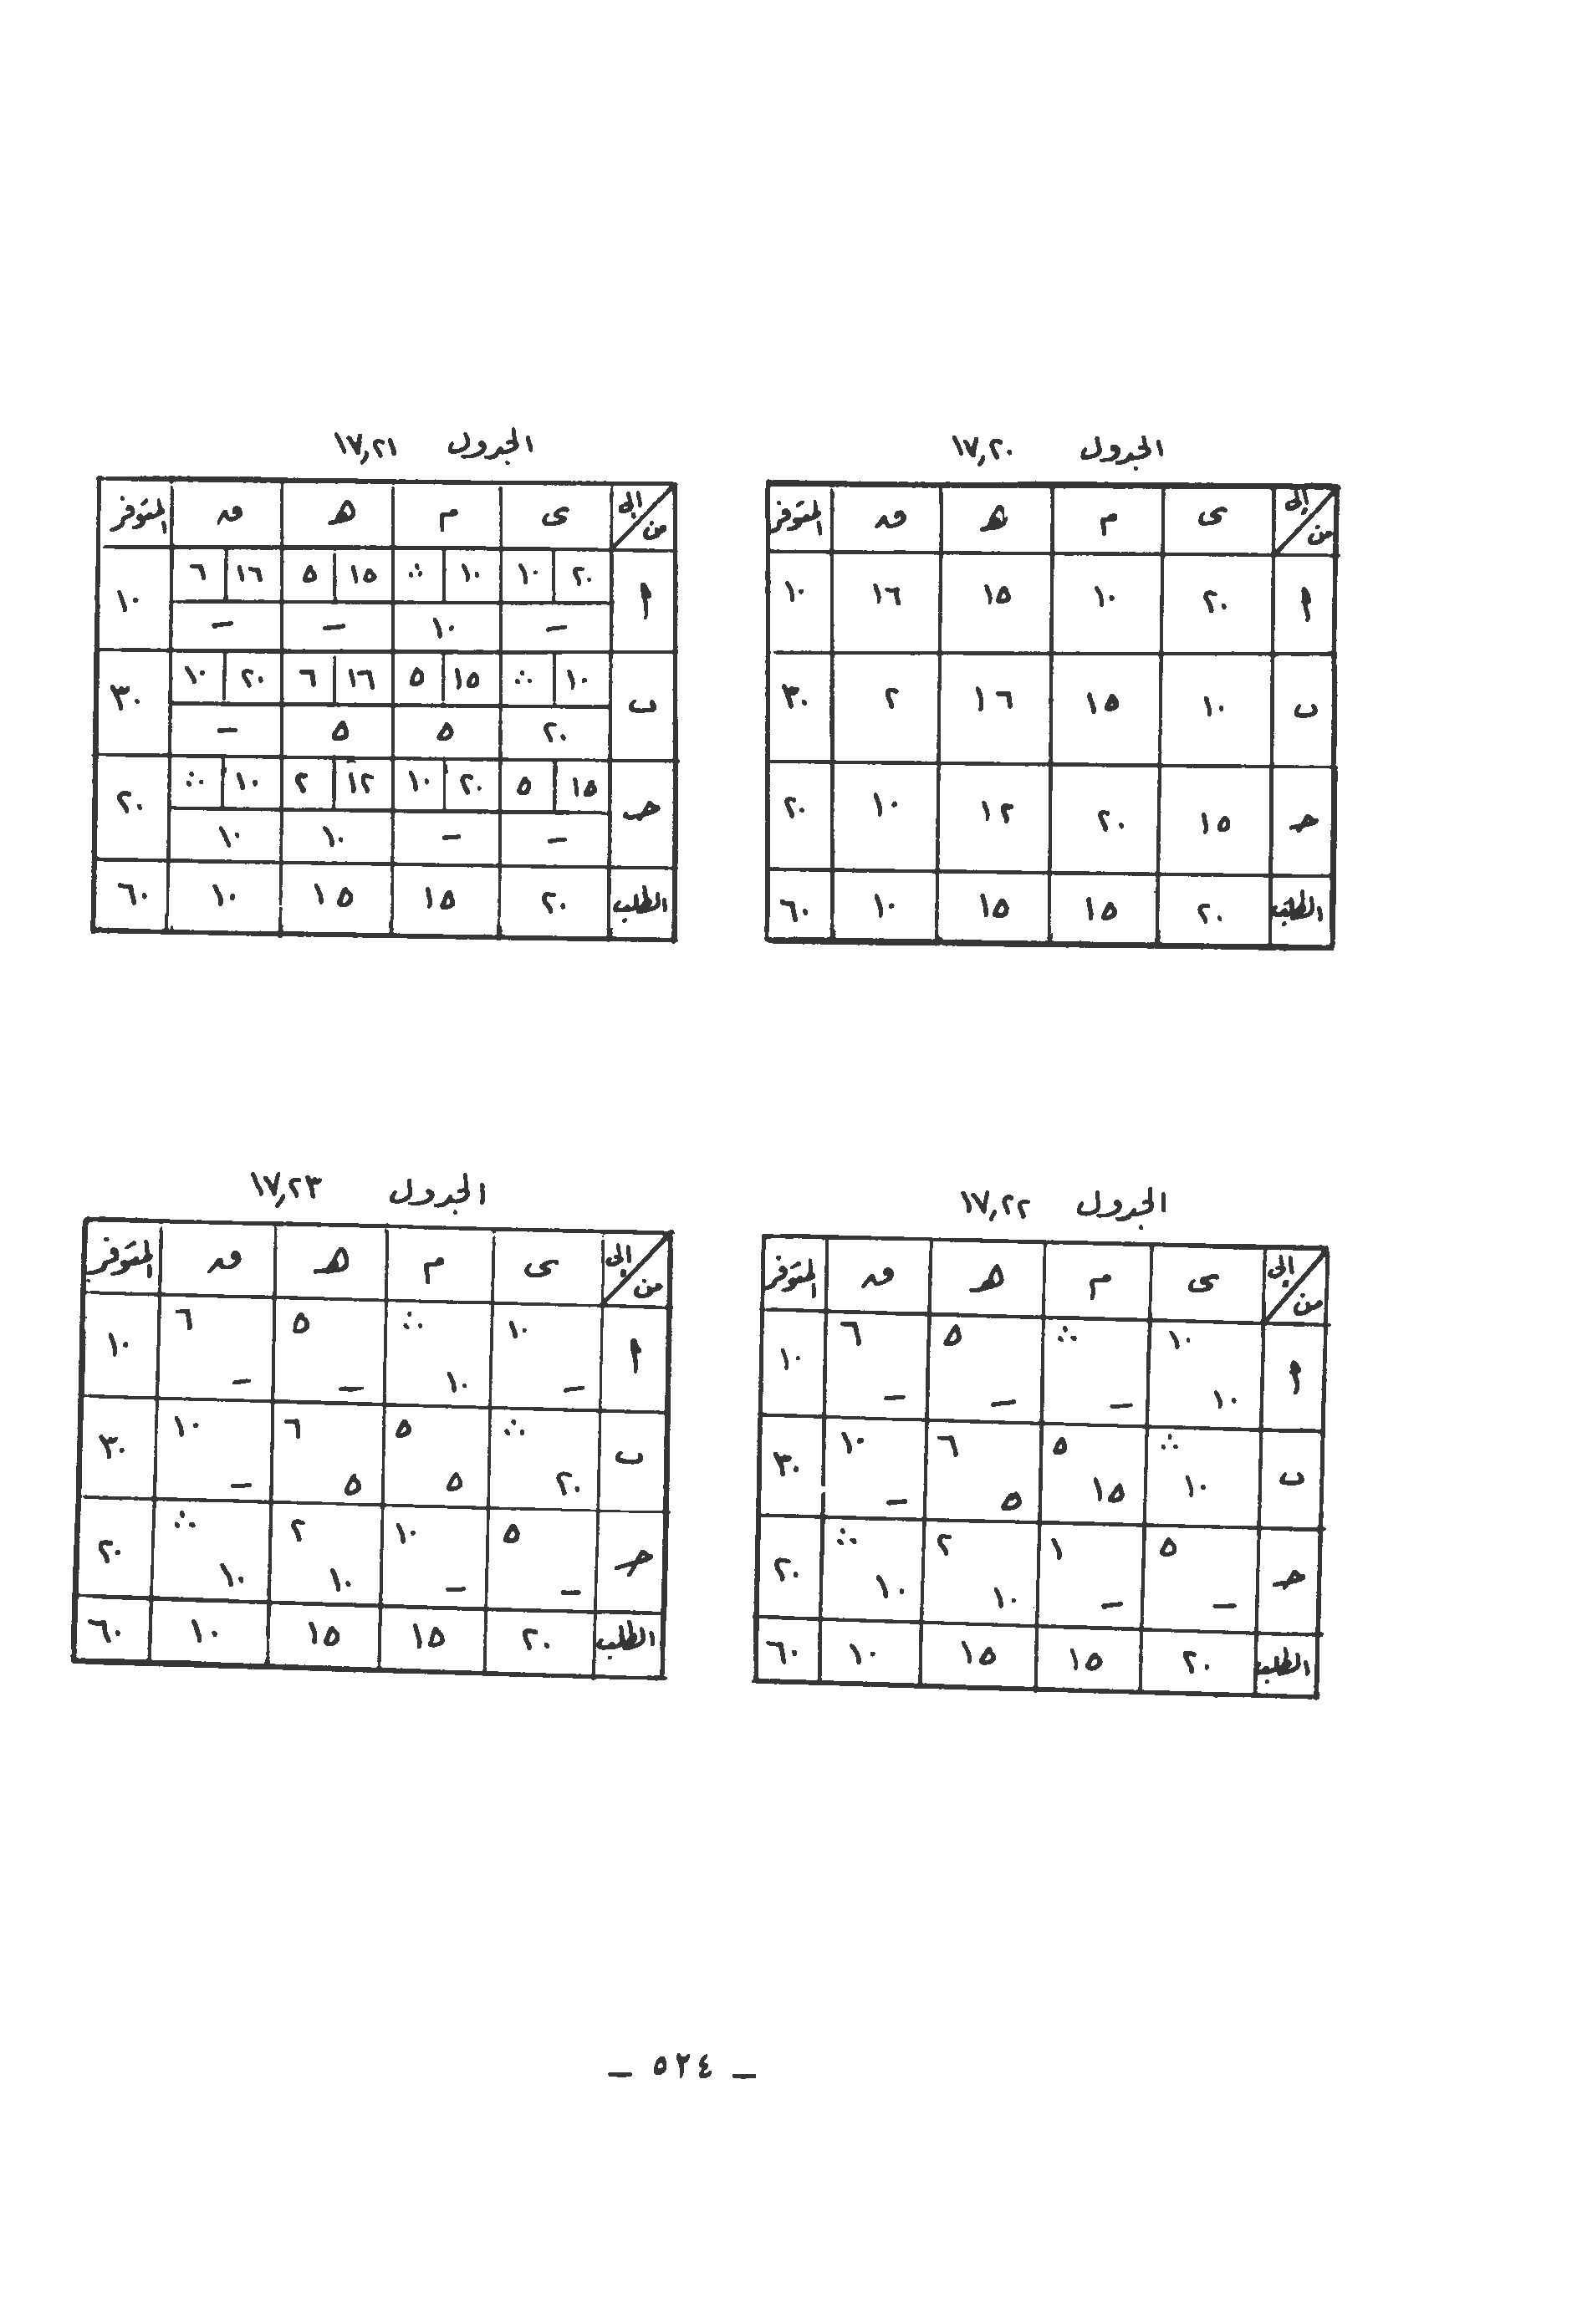 الجدول ١٧,٢٠
إلى من ى م هـ و المتوفر
أ ٢٠ ١٠ ١٥ ١٦ ١٠
ب ١٠ ١٥ ١٦ ٢ ٣٠
حـ ١٥ ٢٠ ١٢ ١٠ ٢٠
الطلب ٢٠ ١٥ ١٥ ١٠ ٦٠
الجدول ١٧,٢١
إلى من ى م هـ و المتوفر
٢٠ ١٠ ١٠ ∴ ١٥ ٥ ١٦ ٦
أ – ١٠ – – ١٠
١٠ ∴ ١٥ ٥ ١٦ ٦ ٢٠ ١٠
ب ٢٠ ٥ ٥ – ٣٠
١٥ ٥ ٢٠ ١٠ ١٢ ٢ ١٠ ∴
حـ – – ١٠ ١٠ ٢٠
الطلب ٢٠ ١٥ ١٥ ١٠ ٦٠
الجدول ١٧,٢٢
إلى من ى م هـ و المتوفر
١٠ ∴ ٥ ٦
أ ١٠ – – – ١٠
∴ ٥ ٦ ١٠
ب ١٠ ١٥ ٥ – ٣٠
٥ ١ ٢ ∴
حـ – – ١٠ ١٠ ٢٠
الطلب ٢٠ ١٥ ١٥ ١٠ ٦٠
الجدول ١٧,٢٣
إلى من ى م هـ و المتوفر
١٠ ∴ ٥ ٦
أ – ١٠ – – ١٠
∴ ٥ ٦ ١٠
ب ٢٠ ٥ ٥ – ٣٠
٥ ١٠ ٢ ∴
حـ – – ١٠ ١٠ ٢٠
الطلب ٢٠ ١٥ ١٥ ١٠ ٦٠
– ٥٢٤ –